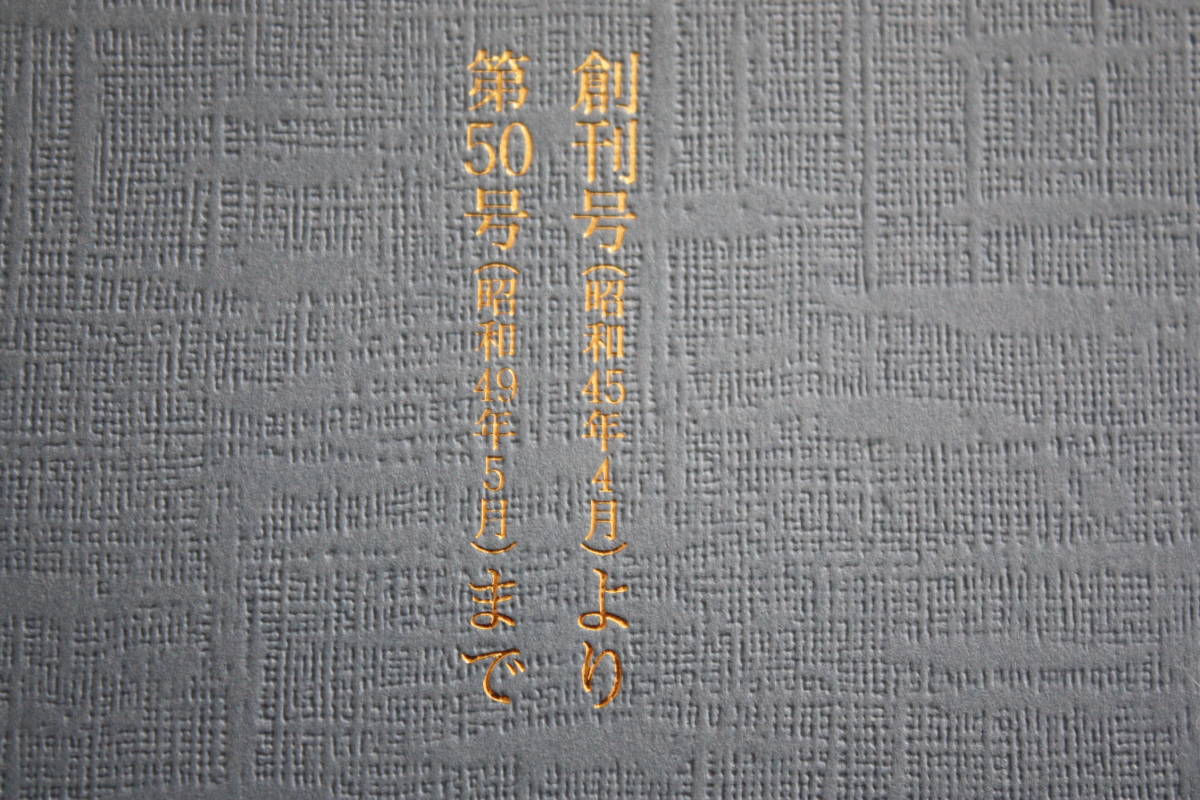 創刊号(昭和45年4月)より
第50号(昭和49年5月)まで